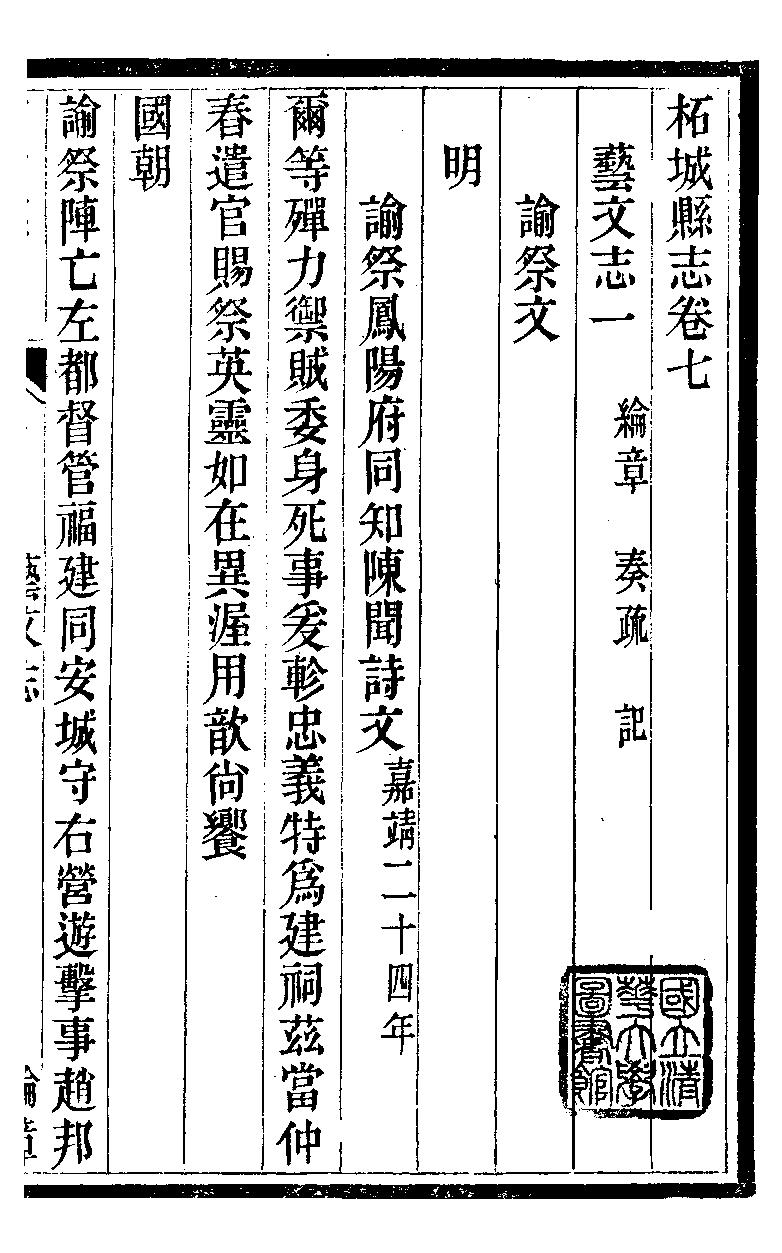 柘城縣志卷七
藝文志一 綸章 奏疏 記
諭祭文
明
諭祭鳳陽府同知陳聞詩文 嘉靖二十四年
爾等殫力禦賊委身死事爰軫忠義特爲建祠茲當仲
春遣官賜祭英靈如在異渥用歆尙饗
國朝
諭祭陣亡左都督管福建同安城守右營遊擊事趙邦
藝文志
綸章
國立清
華大學
圖書館